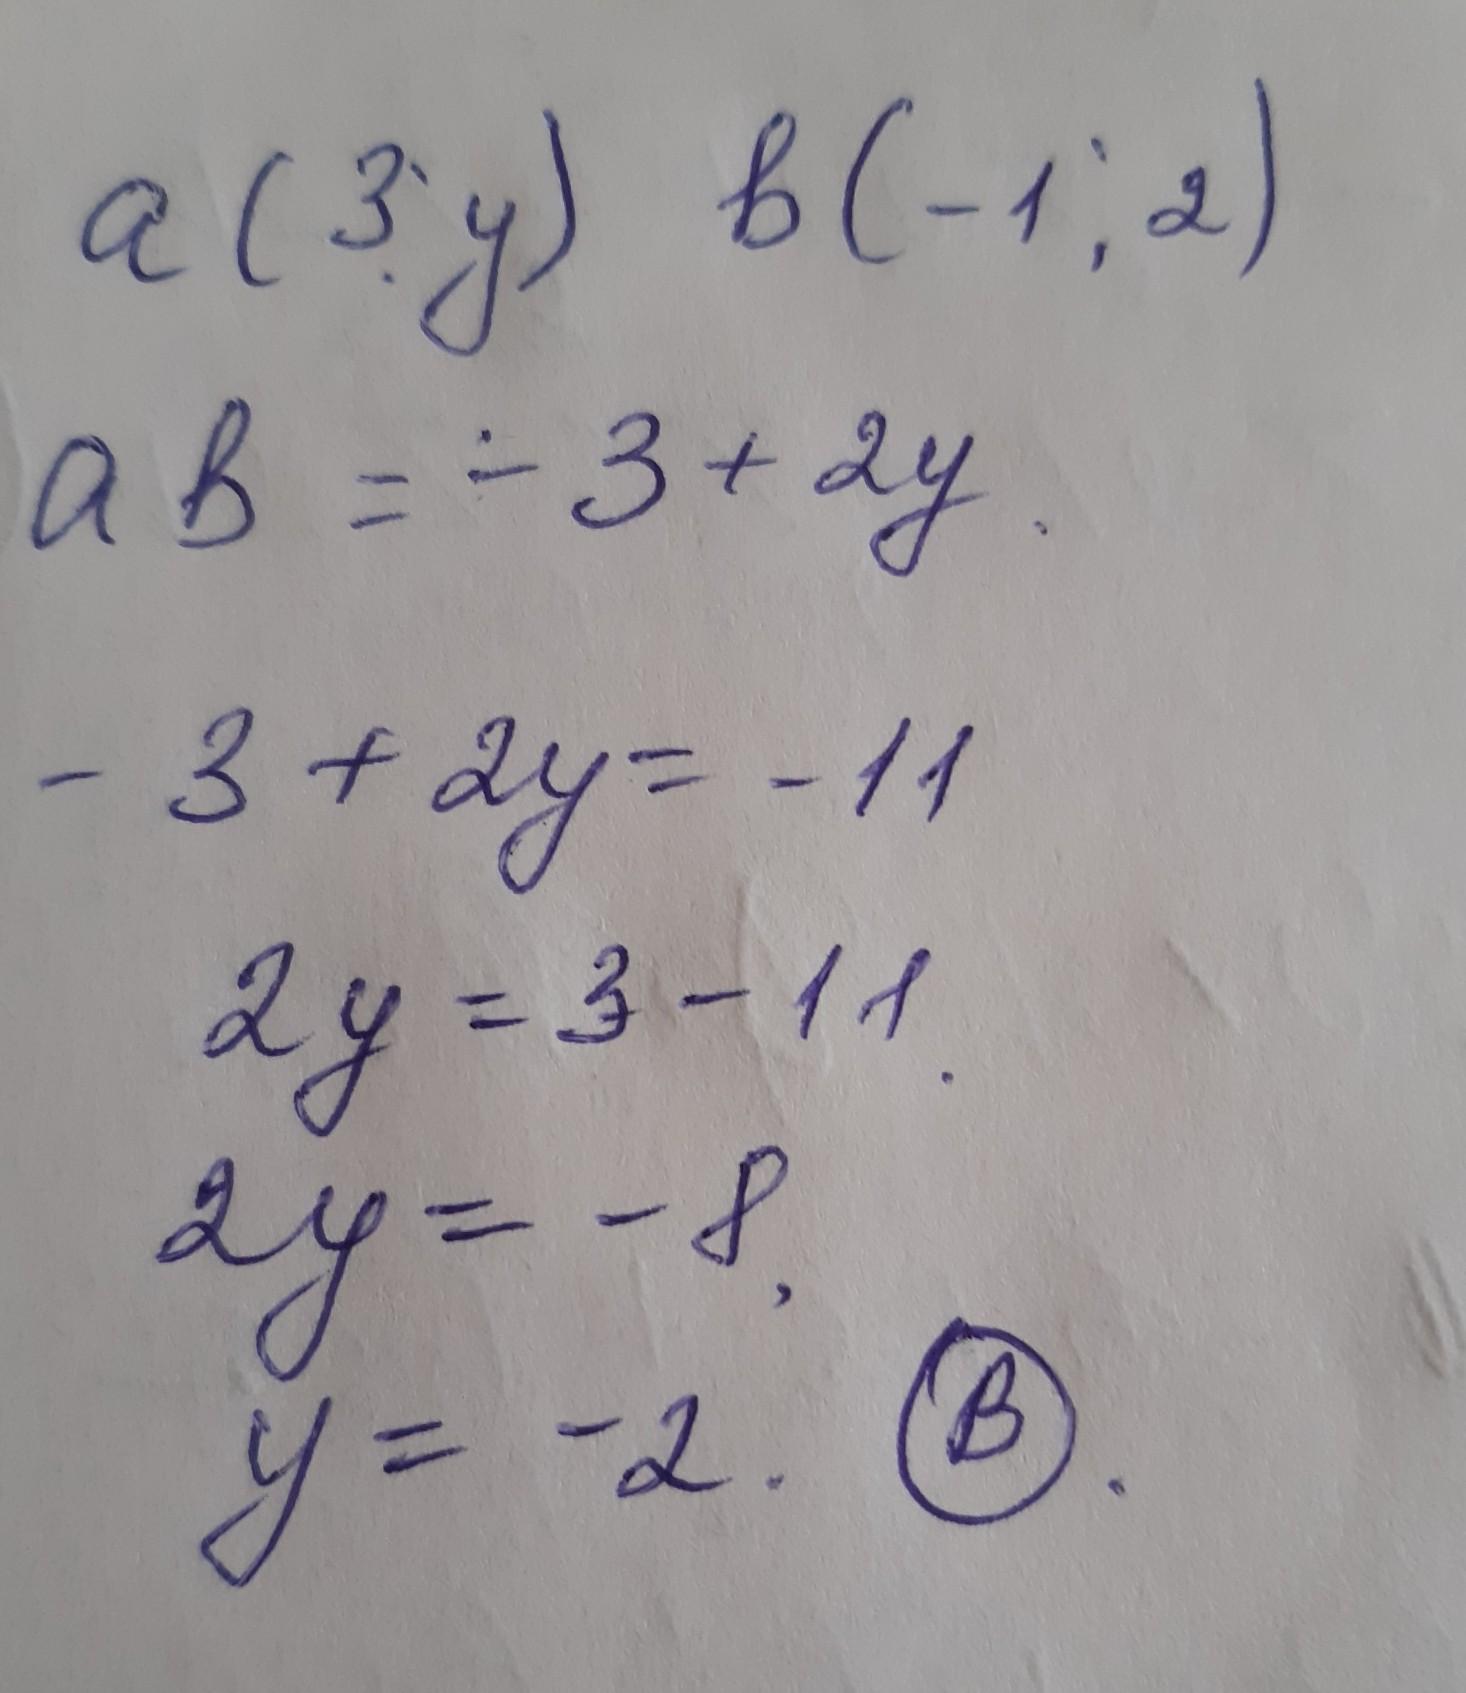 a(3;y) b(-1;2)
ab = -3+2y.
-3+2y=-11
2y=3-11.
2y=-8,
y=-2. B.